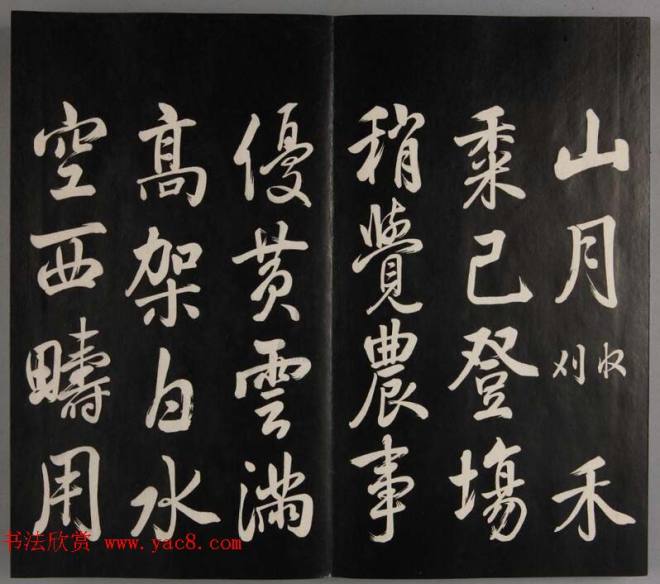 山月收刈禾
黍已登場
稍覺農事
優黄雲滿
高架白水
空西疇用
书法欣赏 www.yac8.com